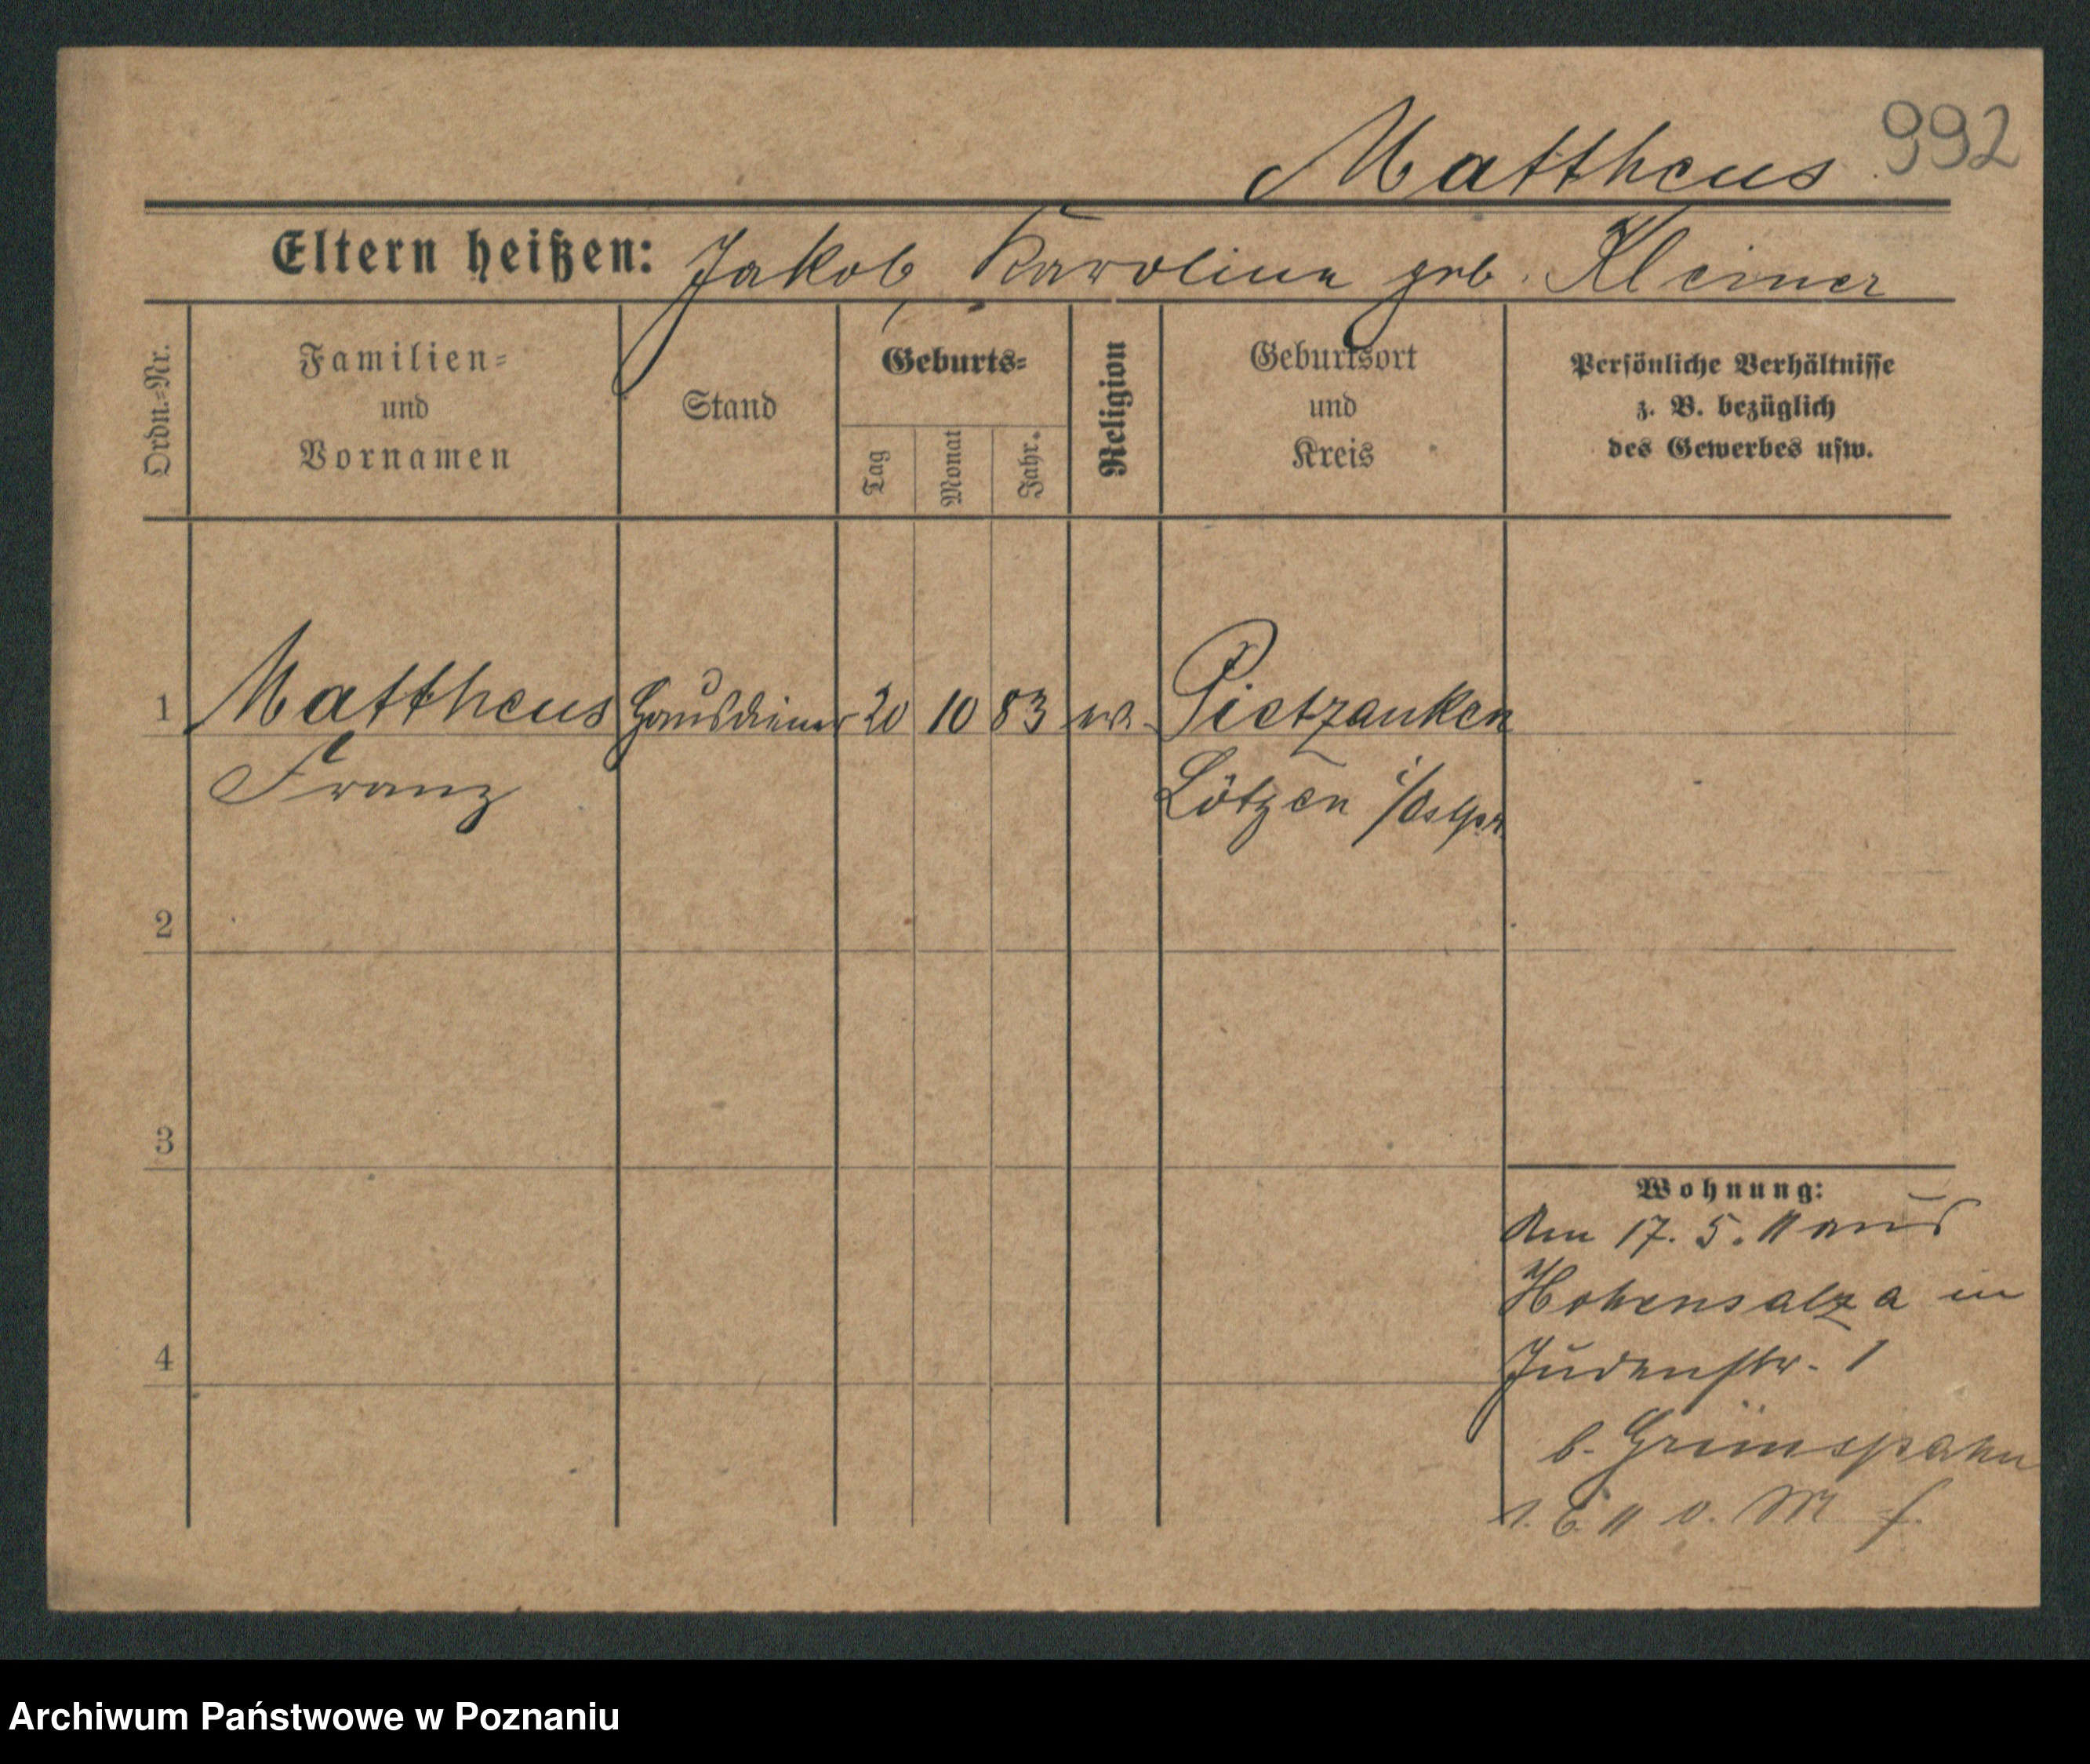 Mattheus 992
Eltern heißen: Jakob Karolina geb. Kleiner
Ordn.-Nr.
Familien-
und
Vornamen
Stand
Geburts-
Tag
Monat
Jahr.
Religion
Geburtsort
und
Kreis
Persönliche Verhältnisse
z. B. bezüglich
des Gewerbes usw.
1 Mattheus Hausdiener 20 10 83 ev. Pietzanken
Franz Lötzen i/Ostpr.
2
3
4
Wohnung:
Am 17. 5. 11 aus
Hohensalza in
Judenstr. 1
b. Grünspahn
1. 6 11 v. M
Archiwum Państwowe w Poznaniu